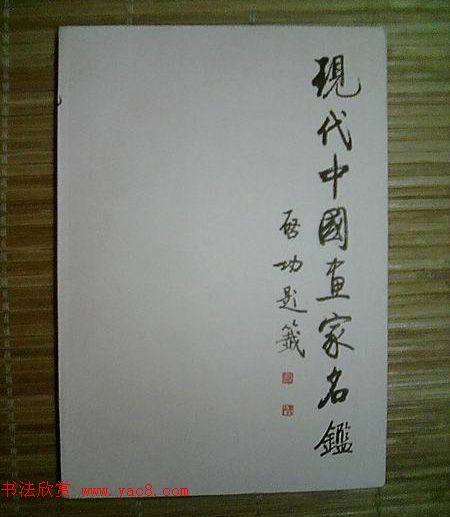 現代中國画家名鑑
啓功題籤
书法欣赏 www.yac8.com